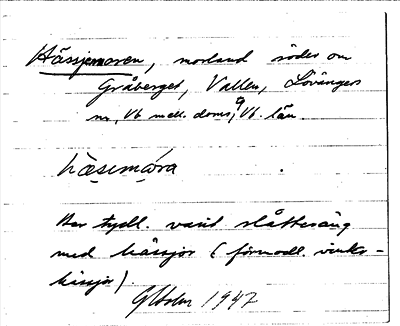 Hässjemoren, morland söder om
Gråberget, Vallen, Lövångers
sn, Vb mell. doms, Vb. län.
hæsemora
Har tydl. varit slåtteräng
med hässjor (förmodl. vinkel-
hässjor).
GHolm 1947